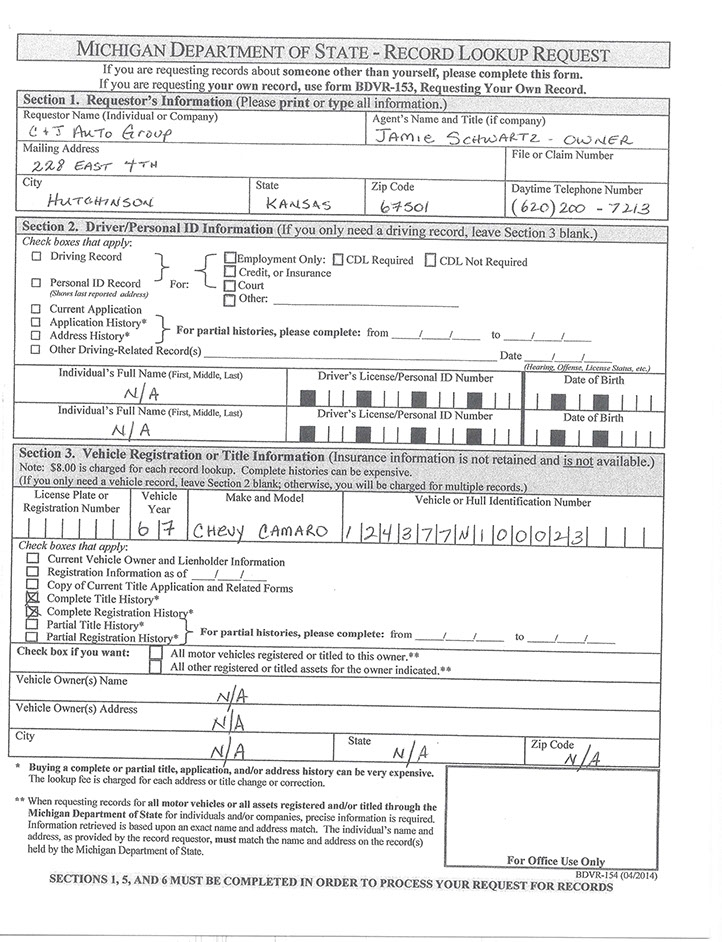 MICHIGAN DEPARTMENT OF STATE - RECORD LOOKUP REQUEST
If you are requesting records about someone other than yourself, please complete this form.
If you are requesting your own record, use form BDVR-153, Requesting Your Own Record.
Section 1. Requestor's Information (Please print or type all information.)
Requestor Name (Individual or Company) Agent's Name and Title (if company)
C+J Auto Group JAMIE SCHWARTZ - OWNER
Mailing Address File or Claim Number
228 EAST 4TH
City State Zip Code Daytime Telephone Number
HUTCHINSON KANSAS 67501 (620)200-7213
Section 2. Driver/Personal ID Information (If you only need a driving record, leave Section 3 blank.)
Check boxes that apply:
Driving Record Employment Only: CDL Required CDL Not Required
Credit, or Insurance
Personal ID Record For: Court
(Shows last reported address) Other:
Current Application
Application History*
Address History* For partial histories, please complete: from / / to / /
Other Driving-Related Record(s) Date / /
(Hearing, Offense, License Status, etc.)
Individual's Full Name (First, Middle, Last) Driver's License/Personal ID Number Date of Birth
N/A
Individual's Full Name (First, Middle, Last) Driver's License/Personal ID Number Date of Birth
N/A
Section 3. Vehicle Registration or Title Information (Insurance information is not retained and is not available.)
Note: $8.00 is charged for each record lookup. Complete histories can be expensive.
(If you only need a vehicle record, leave Section 2 blank; otherwise, you will be charged for multiple records.)
License Plate or Registration Number Vehicle Year Make and Model Vehicle or Hull Identification Number
67 CHEVY CAMARO 124377N100023
Check boxes that apply:
Current Vehicle Owner and Lienholder Information
Registration Information as of / /
Copy of Current Title Application and Related Forms
Complete Title History*
Complete Registration History*
Partial Title History*
Partial Registration History* For partial histories, please complete: from / / to / /
Check box if you want: All motor vehicles registered or titled to this owner.**
All other registered or titled assets for the owner indicated.**
Vehicle Owner(s) Name
N/A
Vehicle Owner(s) Address
N/A
City State Zip Code
N/A N/A N/A
* Buying a complete or partial title, application, and/or address history can be very expensive.
The lookup fee is charged for each address or title change or correction.
** When requesting records for all motor vehicles or all assets registered and/or titled through the
Michigan Department of State for individuals and/or companies, precise information is required.
Information retrieved is based upon an exact name and address match. The individual's name and
address, as provided by the record requestor, must match the name and address on the record(s)
held by the Michigan Department of State.
For Office Use Only
BDVR-154 (04/2014)
SECTIONS 1, 5, AND 6 MUST BE COMPLETED IN ORDER TO PROCESS YOUR REQUEST FOR RECORDS